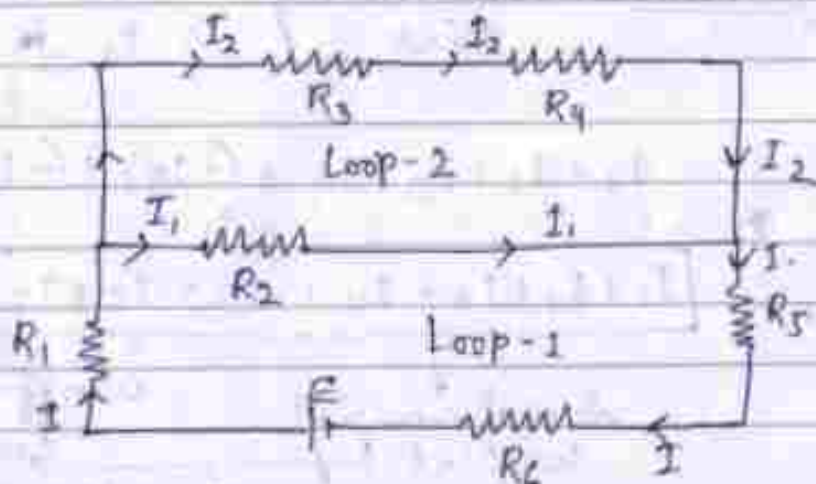 I₂ I₂
R₃ R₄
Loop-2 I₂
I₁ I₁
I
R₂ R₅
R₁ Loop-1
E
I
R₆ I